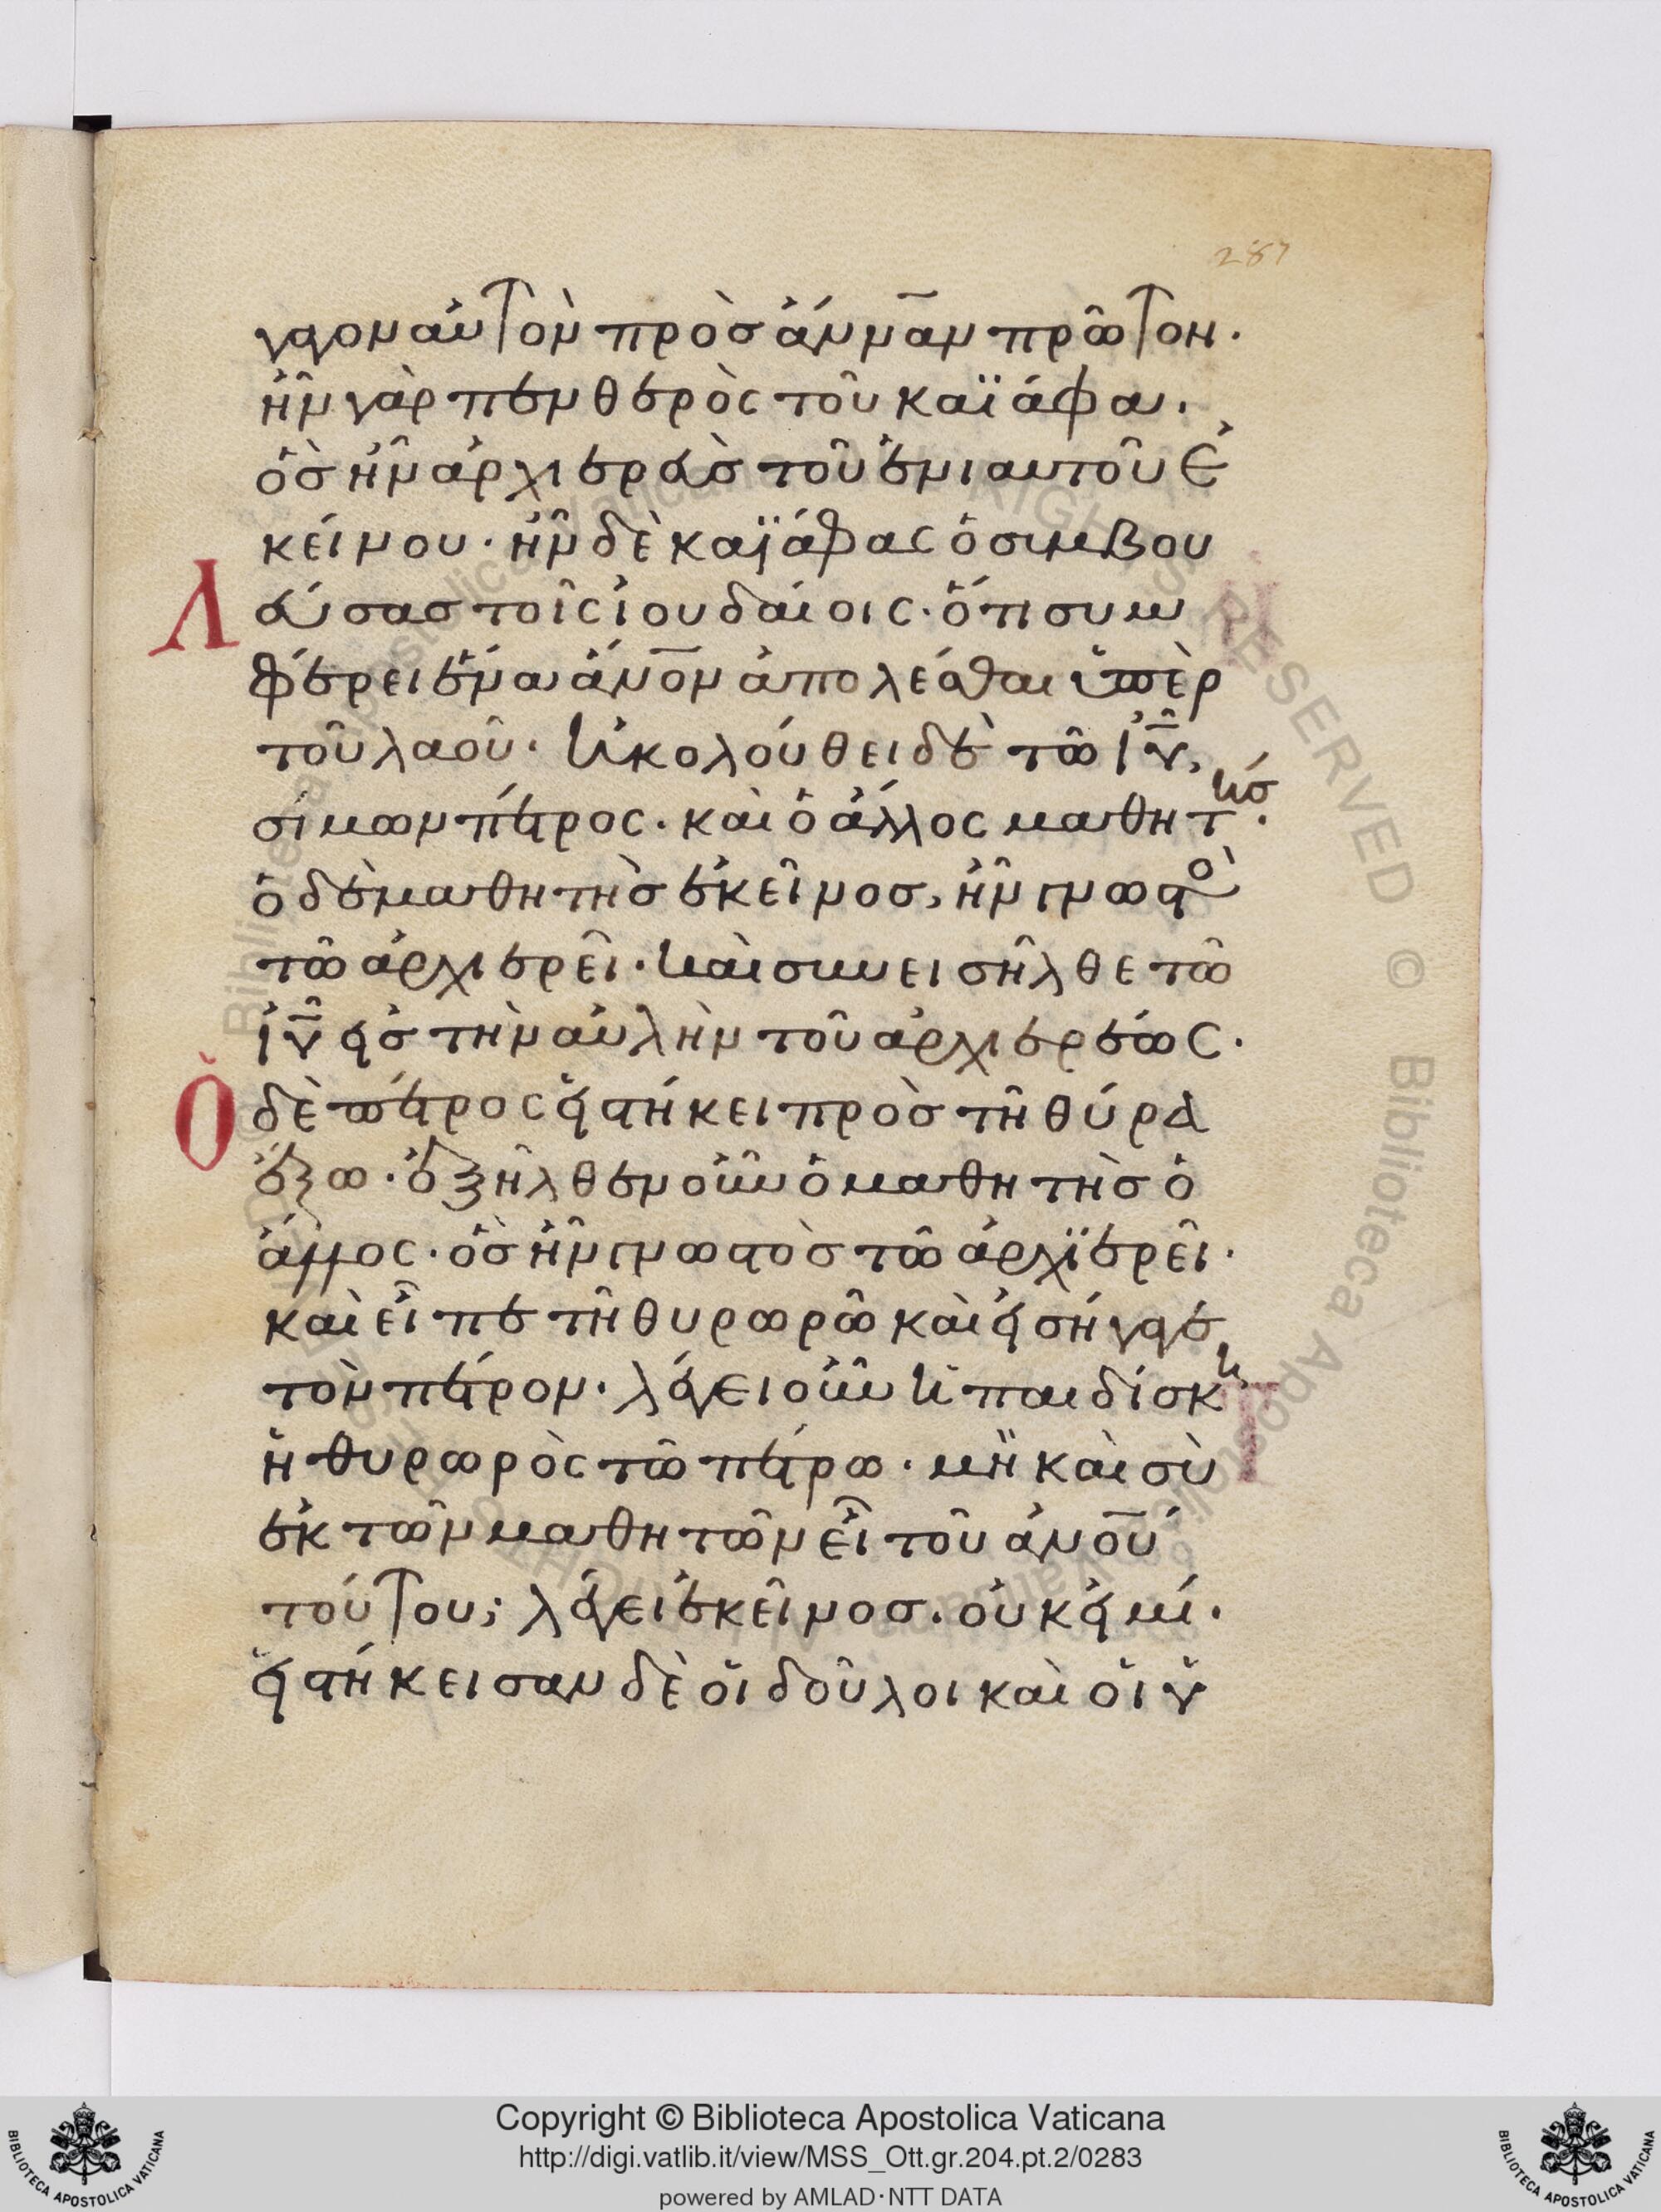 287
γαγον αὐτὸν πρὸς ἄνναν πρῶτον.
ἦν γὰρ πενθερὸς τοῦ καϊάφα.
ὃς ἦν ἀρχιερεὺς τοῦ ἐνιαυτοῦ ἐ
κείνου· ἦν δὲ καϊάφας ὁ συμβου
λεύσας τοῖς ἰουδαίοις· ὅτι συμ
φέρει ἕνα ἄνον ἀπολέσθαι ὑπὲρ
τοῦ λαοῦ· ἠκολούθει δὲ τῶ ἰῦ,
σίμων πέτρος· καὶ ὁ ἄλλος μαθητής·
ὁ δὲ μαθητὴς ἐκεῖνος, ἦν γνωστὸς
τῶ ἀρχιερεῖ· καὶ συνεισῆλθε τῶ
ἰῦ εἰς τὴν αὐλὴν τοῦ ἀρχιερέως.
Ὁ δὲ πέτρος εἱστήκει πρὸς τῆ θύρα
ἔξω· ἐξῆλθεν οὖν ὁ μαθητὴς ὁ
ἄλλος· ὃς ἦν γνωστὸς τῶ ἀρχϊερεῖ·
καὶ εἶπε τῆ θυρωρῶ καὶ εἰσήγαγε
τὸν πέτρον· λέγει οὖν ἡ παιδίσκη
ἡ θυρωρὸς τῶ πέτρω· μὴ καὶ σὺ
ἐκ τῶν μαθητῶν εἶ τοῦ ἀνου
τούτου; λέγει ἐκεῖνος· οὐκ εἰμί·
εἱστήκεισαν δὲ οἱ δοῦλοι καὶ οἱ ὑ
Copyright © Biblioteca Apostolica Vaticana
http://digi.vatlib.it/view/MSS_Ott.gr.204.pt.2/0283
powered by AMLAD·NTT DATA
BIBLIOTECA APOSTOLICA VATICANA
BIBLIOTECA APOSTOLICA VATICANA